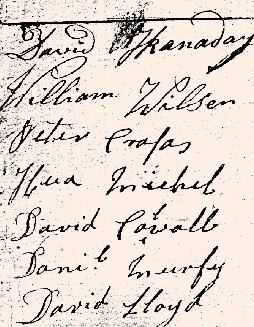 David Kanaday
William Wilson
Peter Crafas
Hua Michel
David Covalt
Dani.l Murfy
David Lloyd